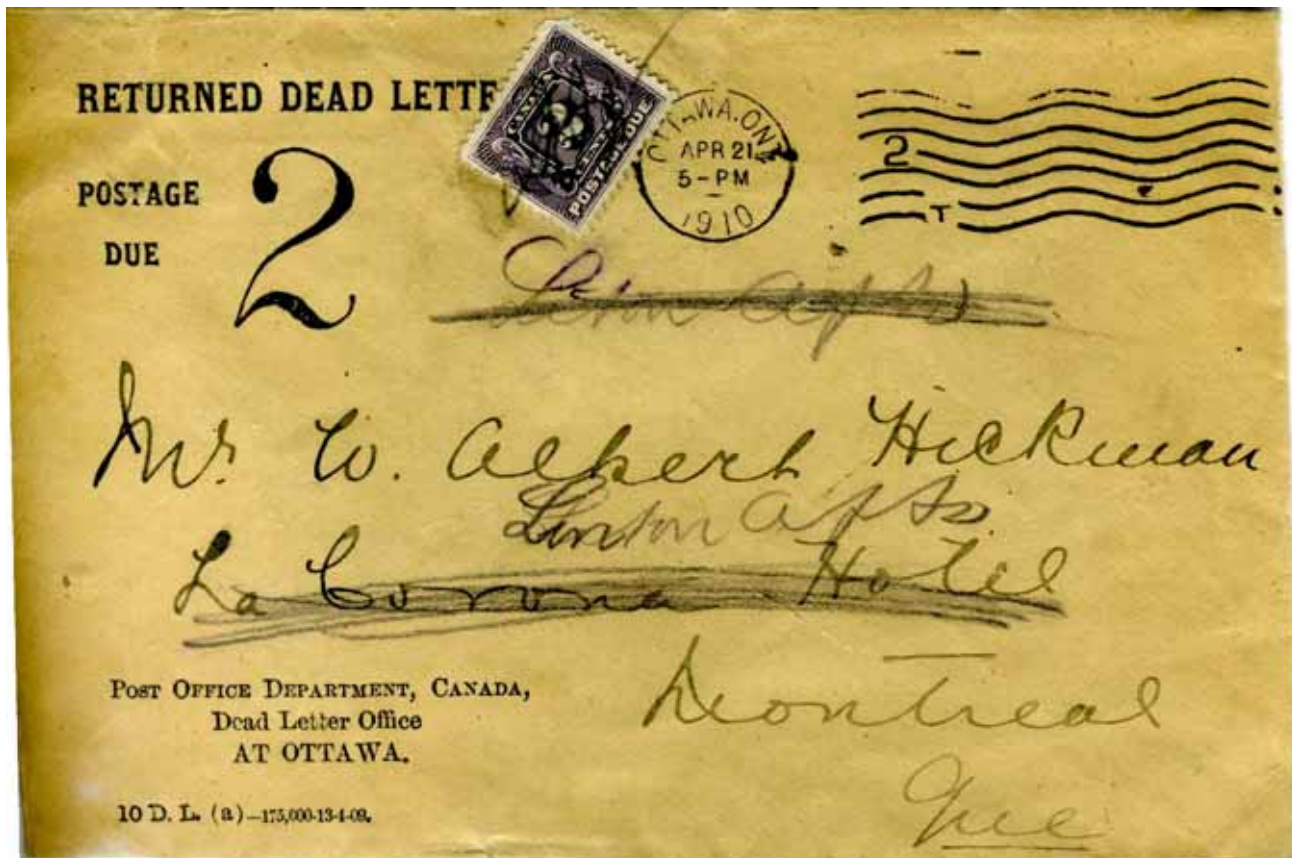 RETURNED DEAD LETTE
POSTAGE
DUE
2
CANADA
2
CENTS
POSTAGE DUE
OTTAWA. ONT.
APR 21
5-PM
1910
2
T
Linton Apts
Mr. W. Albert Hickman
Linton Apts.
La Corona Hotel
Montreal
Que
POST OFFICE DEPARTMENT, CANADA,
Dead Letter Office
AT OTTAWA.
10 D. L. (a)—175,000-13-4-09.